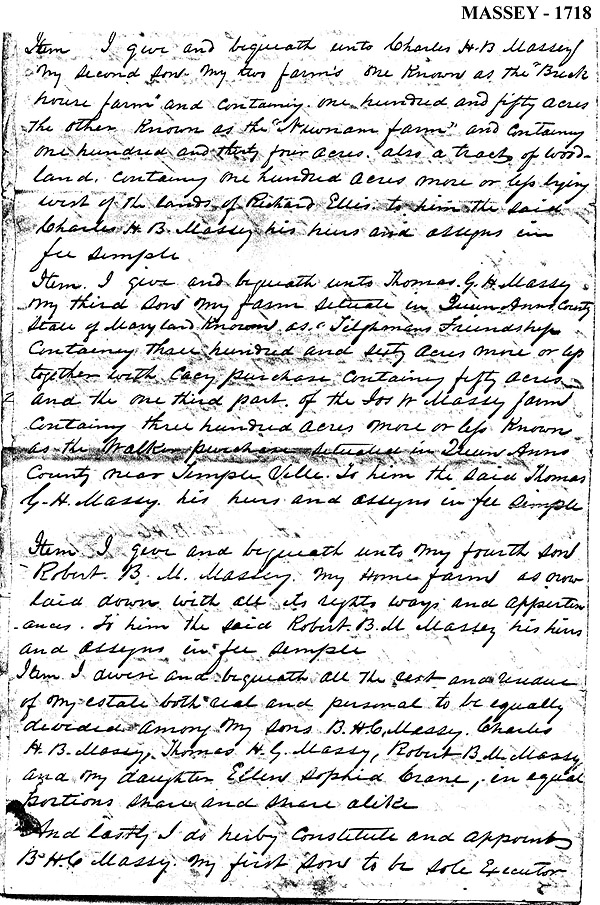 MASSEY - 1718
Item I give and bequeath unto Charles H. B Massey
my second son my two farm's one Known as the "Brick
house farm" and containing one hundred and fifty acres
the other Known as the "Newnam farm" and containing
one hundred and thirty four acres. also a tract of wood-
land. containing one hundred acres more or less lying
west of the lands of Richard Ellis. to him the said
Charles H. B. Massey his heirs and assigns in
fee simple
Item. I give and bequeath unto Thomas. G. H. Massey
my third son my farm situate in Queen Anns County
State of Maryland Known as "Tilghmans Friendship
containing three hundred and sixty acres more or less
together with Cacy purchase containing fifty acres
and the one third part of the Jos W Massey farm
containing three hundred acres more or less Known
as the Walker purchase situated in Queen Anns
County near Temple Ville. To him the said Thomas
G. H. Massey. his heirs and assigns in fee simple
Item I give and bequeath unto my fourth son
Robert. B. M. Massey. my Home farm as now
laid down with all its rights ways and apperten
-ances. To him the said Robert. B. M Massey his heirs
and assigns in fee simple
Item I devise and bequeath all the rest and residue
of my estate both real and personal to be equally
divided among my sons B. H C. Massey. Charles
H. B. Massey, Thomas H. G. Massy, Robert B. M. Massy
and my daughter Ellen Sophia Crane, in equal
portions share and share alike
And lastly I do herby constitute and appoint
B. H. C Massy. my first son to be sole Executor